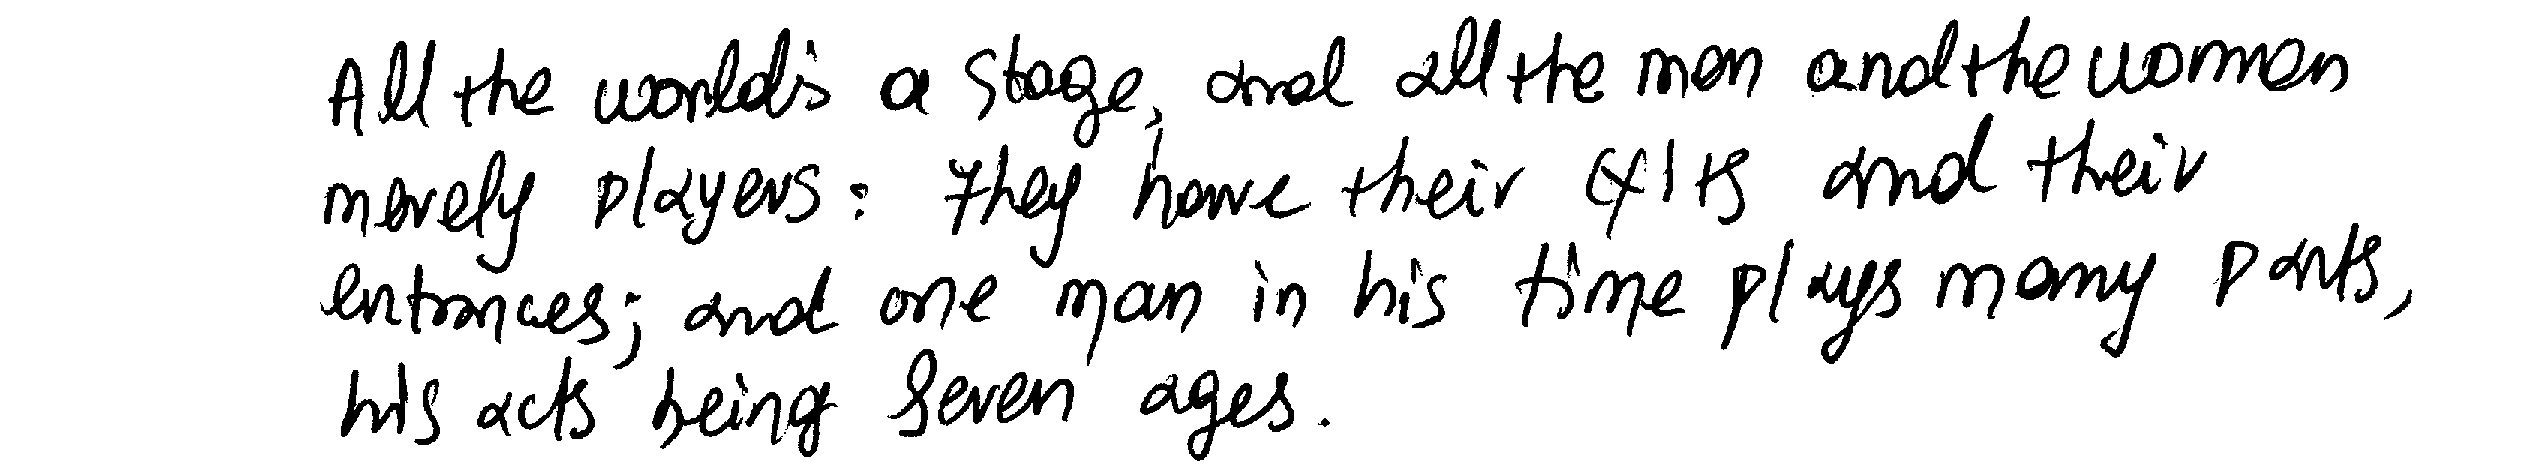 All the world's a stage, and all the men and the women
merely players: they have their exits and their
entrances; and one man in his time plays many parts,
his acts being seven ages.